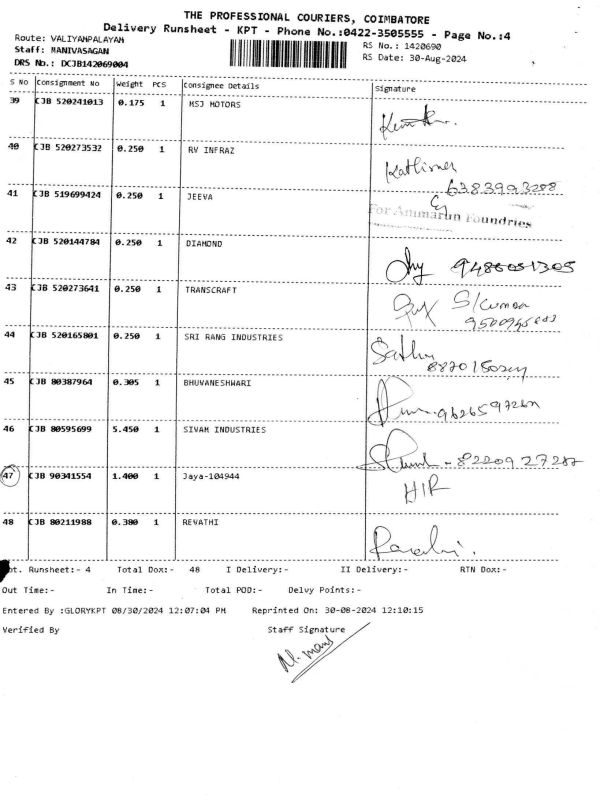 THE PROFESSIONAL COURIERS, COIMBATORE
Delivery Runsheet - KPT - Phone No.:0422-3505555 - Page No.:4
Route: VALIYAMPALAYAM
RS No.: 1420690
Staff: MANIVASAGAN
RS Date: 30-Aug-2024
DRS No.: DCJB142069004
S No Consignment No Weight PCS Consignee Details Signature
39 CJB 520241013 0.175 1 MSJ MOTORS
40 CJB 520273532 0.250 1 RV INFRAZ
6383993288
41 CJB 519699424 0.250 1 JEEVA
For Ammarun Foundries
42 CJB 520144784 0.250 1 DIAMOND
9486051305
43 CJB 520273641 0.250 1 TRANSCRAFT
S/Kumar
44 CJB 520165801 0.250 1 SRI RANG INDUSTRIES
Sathy
45 CJB 80387964 0.305 1 BHUVANESHWARI
46 CJB 80595699 5.450 1 SIVAM INDUSTRIES
47 CJB 90341554 1.400 1 Jaya-104944
HIR
48 CJB 80211988 0.380 1 REVATHI
Runsheet:- 4 Total Dox:- 48 I Delivery:- II Delivery:- RTN Dox:-
Out Time:- In Time:- Total POD:- Delvy Points:-
Entered By :GLORYKPT 08/30/2024 12:07:04 PM Reprinted On: 30-08-2024 12:10:15
Verified By Staff Signature